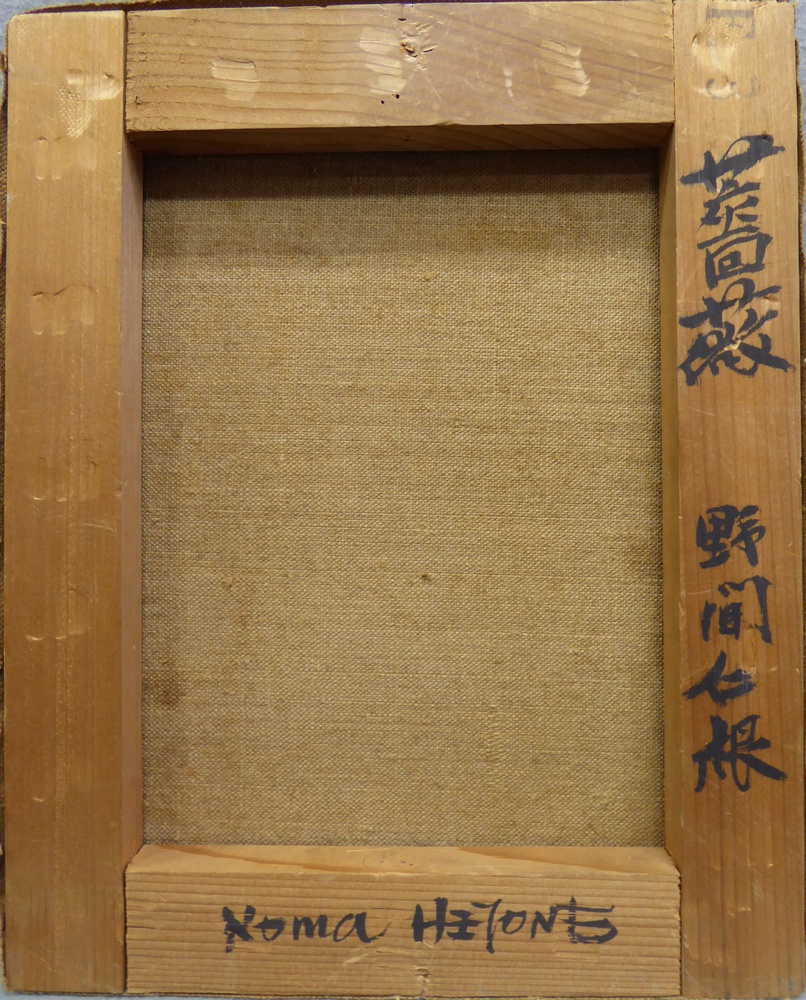 F3
薔薇 野間仁根
Noma HITONE